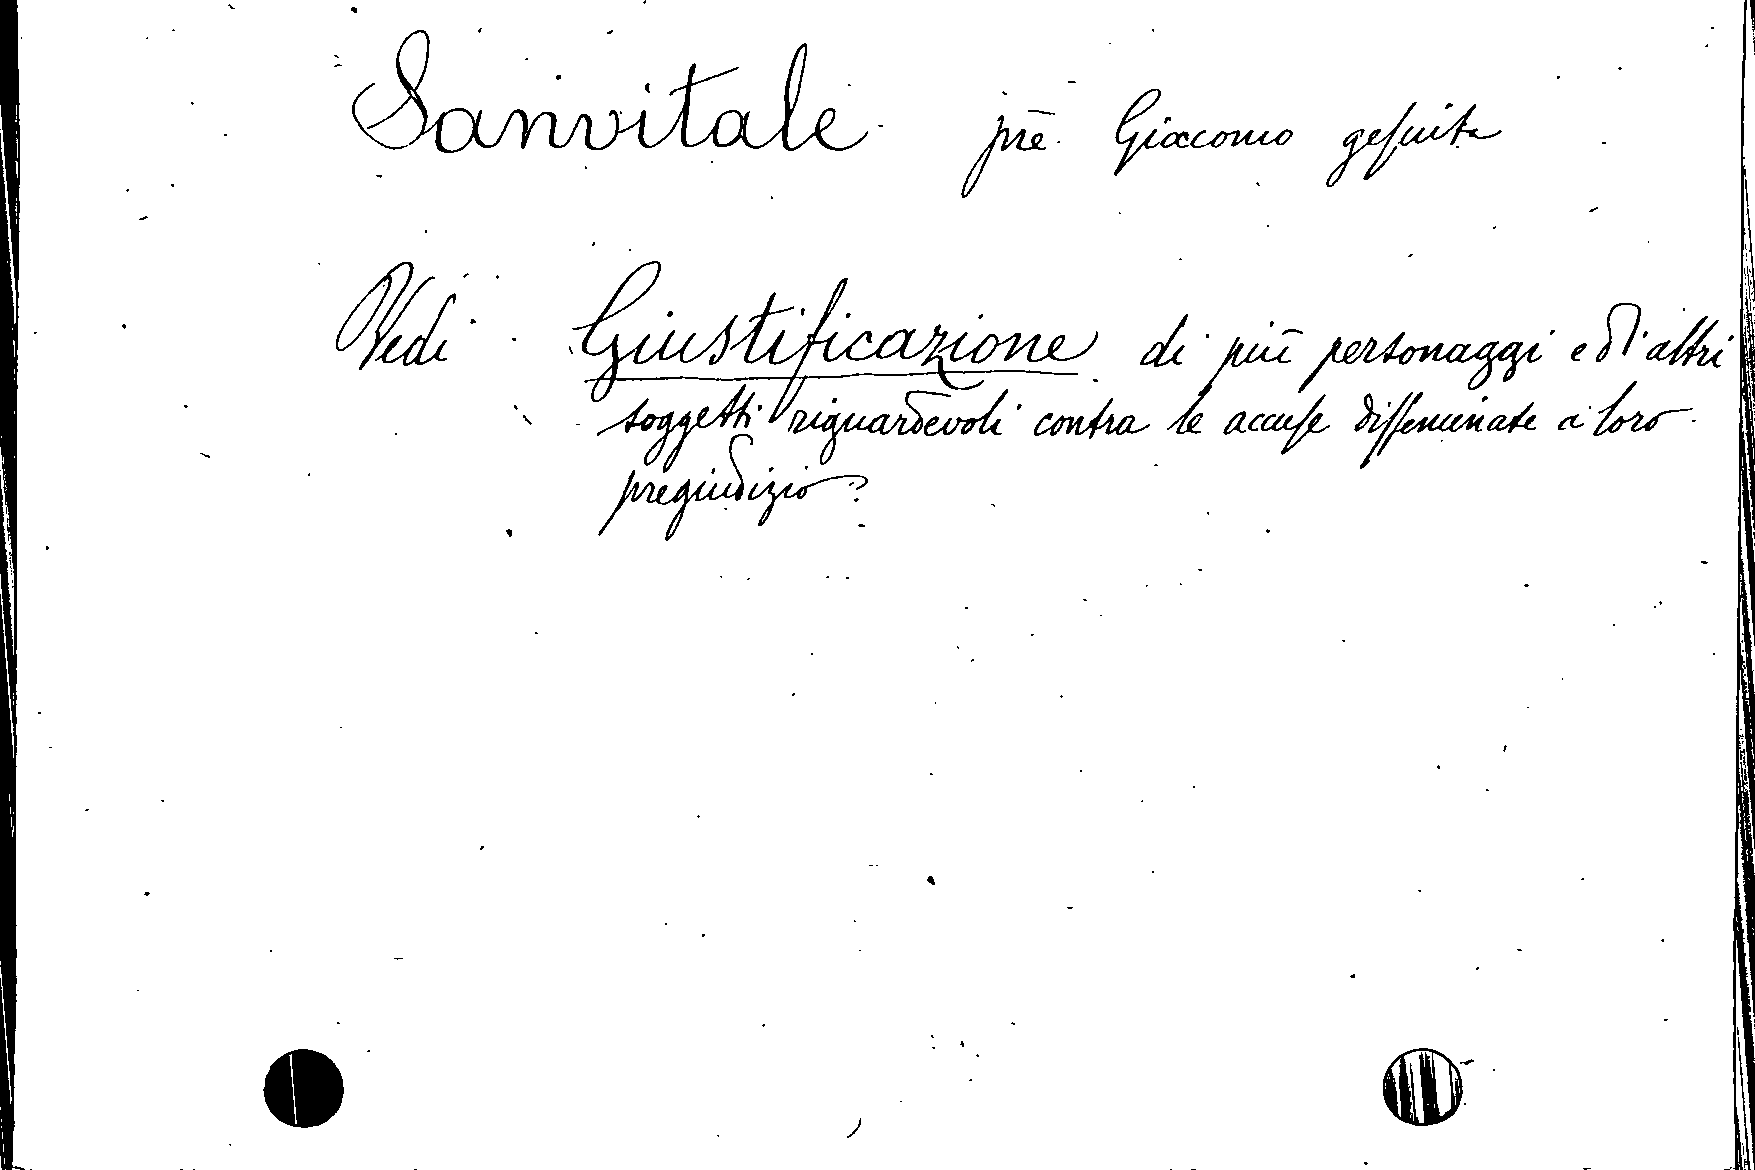 Sanvitale prē. Giacomo gesuita
Vedi Giustificazione di più personaggi e d'altri
soggetti riguardevoli contra le accuse disseminate a loro
pregiudizio.